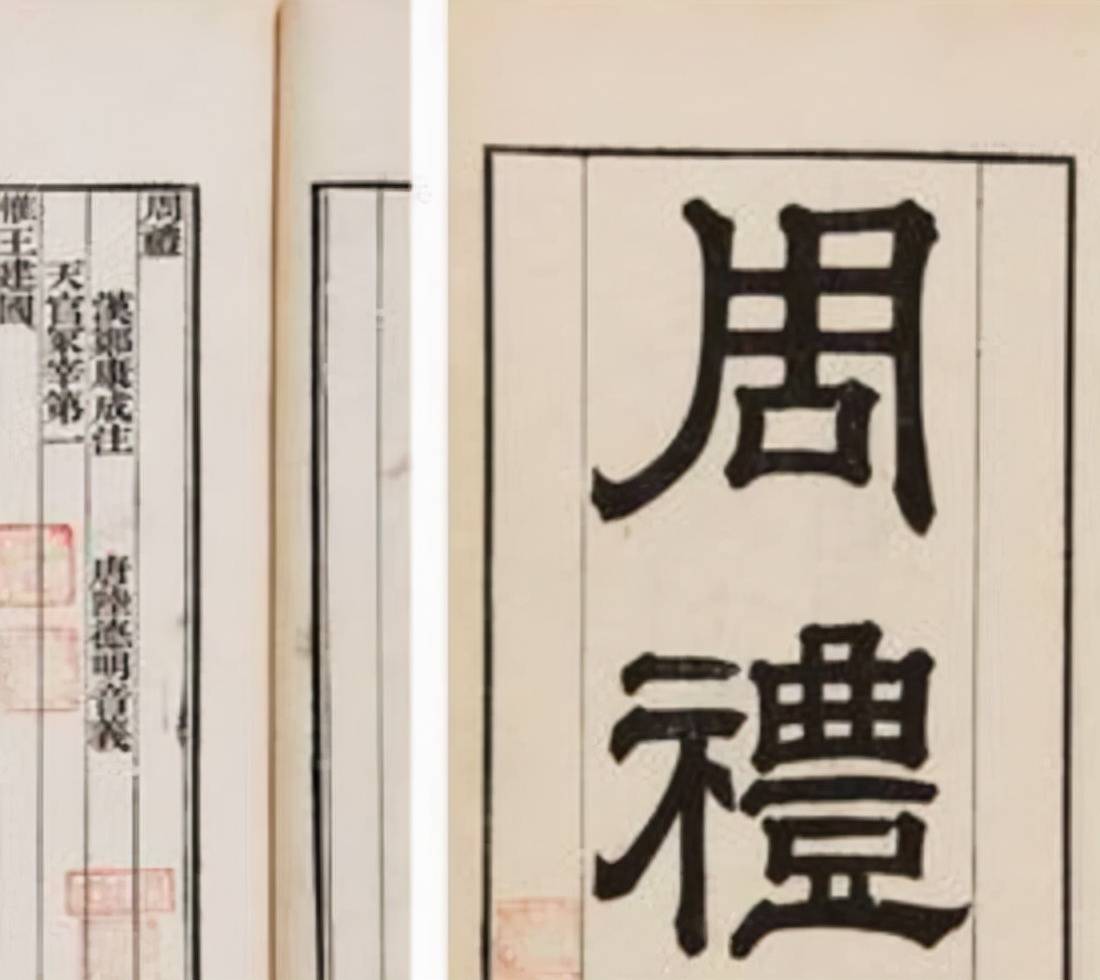 周禮
周禮
漢鄭康成注 唐陸德明音義
天官冢宰第一
惟王建國